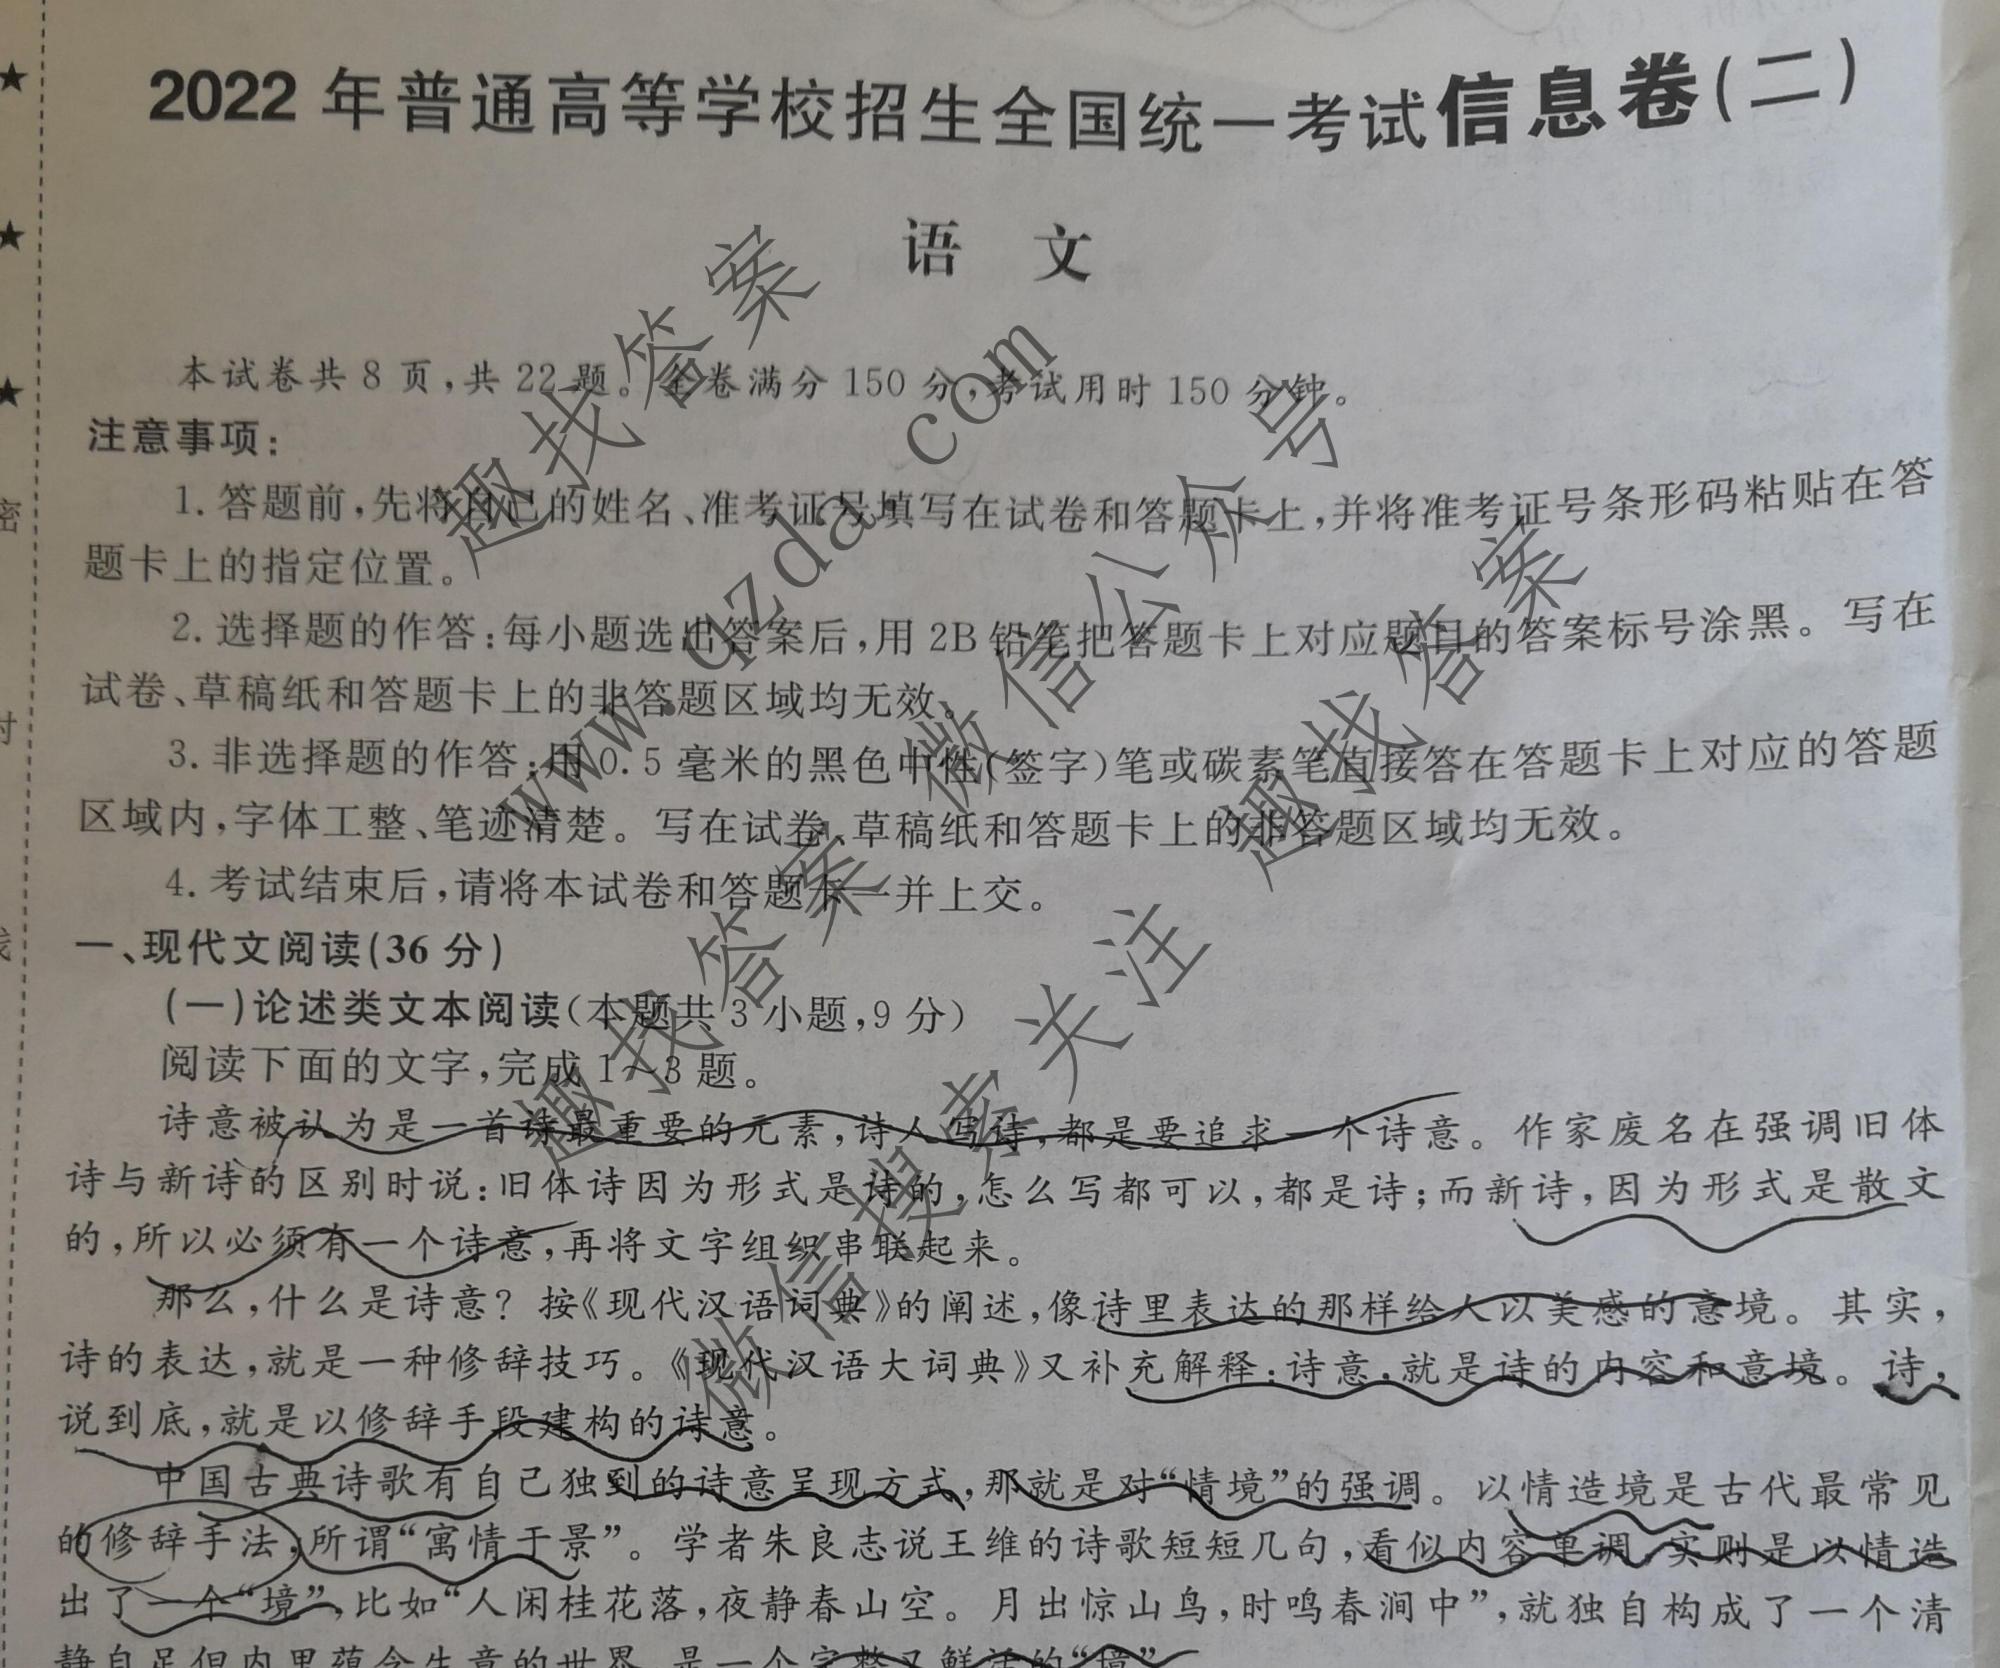 2022年普通高等学校招生全国统一考试信息卷(二)
语 文
本试卷共8页,共22题。全卷满分150分,考试用时150分钟。
注意事项:
1.答题前,先将自己的姓名、准考证号填写在试卷和答题卡上,并将准考证号条形码粘贴在答
题卡上的指定位置。
2.选择题的作答:每小题选出答案后,用2B铅笔把答题卡上对应题目的答案标号涂黑。写在
试卷、草稿纸和答题卡上的非答题区域均无效。
3.非选择题的作答:用0.5毫米的黑色中性(签字)笔或碳素笔直接答在答题卡上对应的答题
区域内,字体工整、笔迹清楚。写在试卷、草稿纸和答题卡上的非答题区域均无效。
4.考试结束后,请将本试卷和答题卡一并上交。
一、现代文阅读(36分)
(一)论述类文本阅读(本题共3小题,9分)
阅读下面的文字,完成1~3题。
诗意被认为是一首诗最重要的元素,诗人写诗,都是要追求一个诗意。作家废名在强调旧体
诗与新诗的区别时说:旧体诗因为形式是诗的,怎么写都可以,都是诗;而新诗,因为形式是散文
的,所以必须有一个诗意,再将文字组织串联起来。
那么,什么是诗意?按《现代汉语词典》的阐述,像诗里表达的那样给人以美感的意境。其实,
诗的表达,就是一种修辞技巧。《现代汉语大词典》又补充解释:诗意,就是诗的内容和意境。诗,
说到底,就是以修辞手段建构的诗意。
中国古典诗歌有自己独到的诗意呈现方式,那就是对“情境”的强调。以情造境是古代最常见
的修辞手法,所谓“寓情于景”。学者朱良志说王维的诗歌短短几句,看似内容单调,实则是以情造
出了一个“境”,比如“人闲桂花落,夜静春山空。月出惊山鸟,时鸣春涧中”,就独自构成了一个清
静自足但内里蕴含生意的世界,是一个完整又鲜活的“境”
密
封
线
趣找答案
www.qzda.com
微信公众号
趣找答案
趣找答案
微信搜索关注